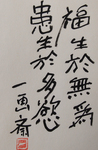 福生於無為
患生於多慾
一禺齋